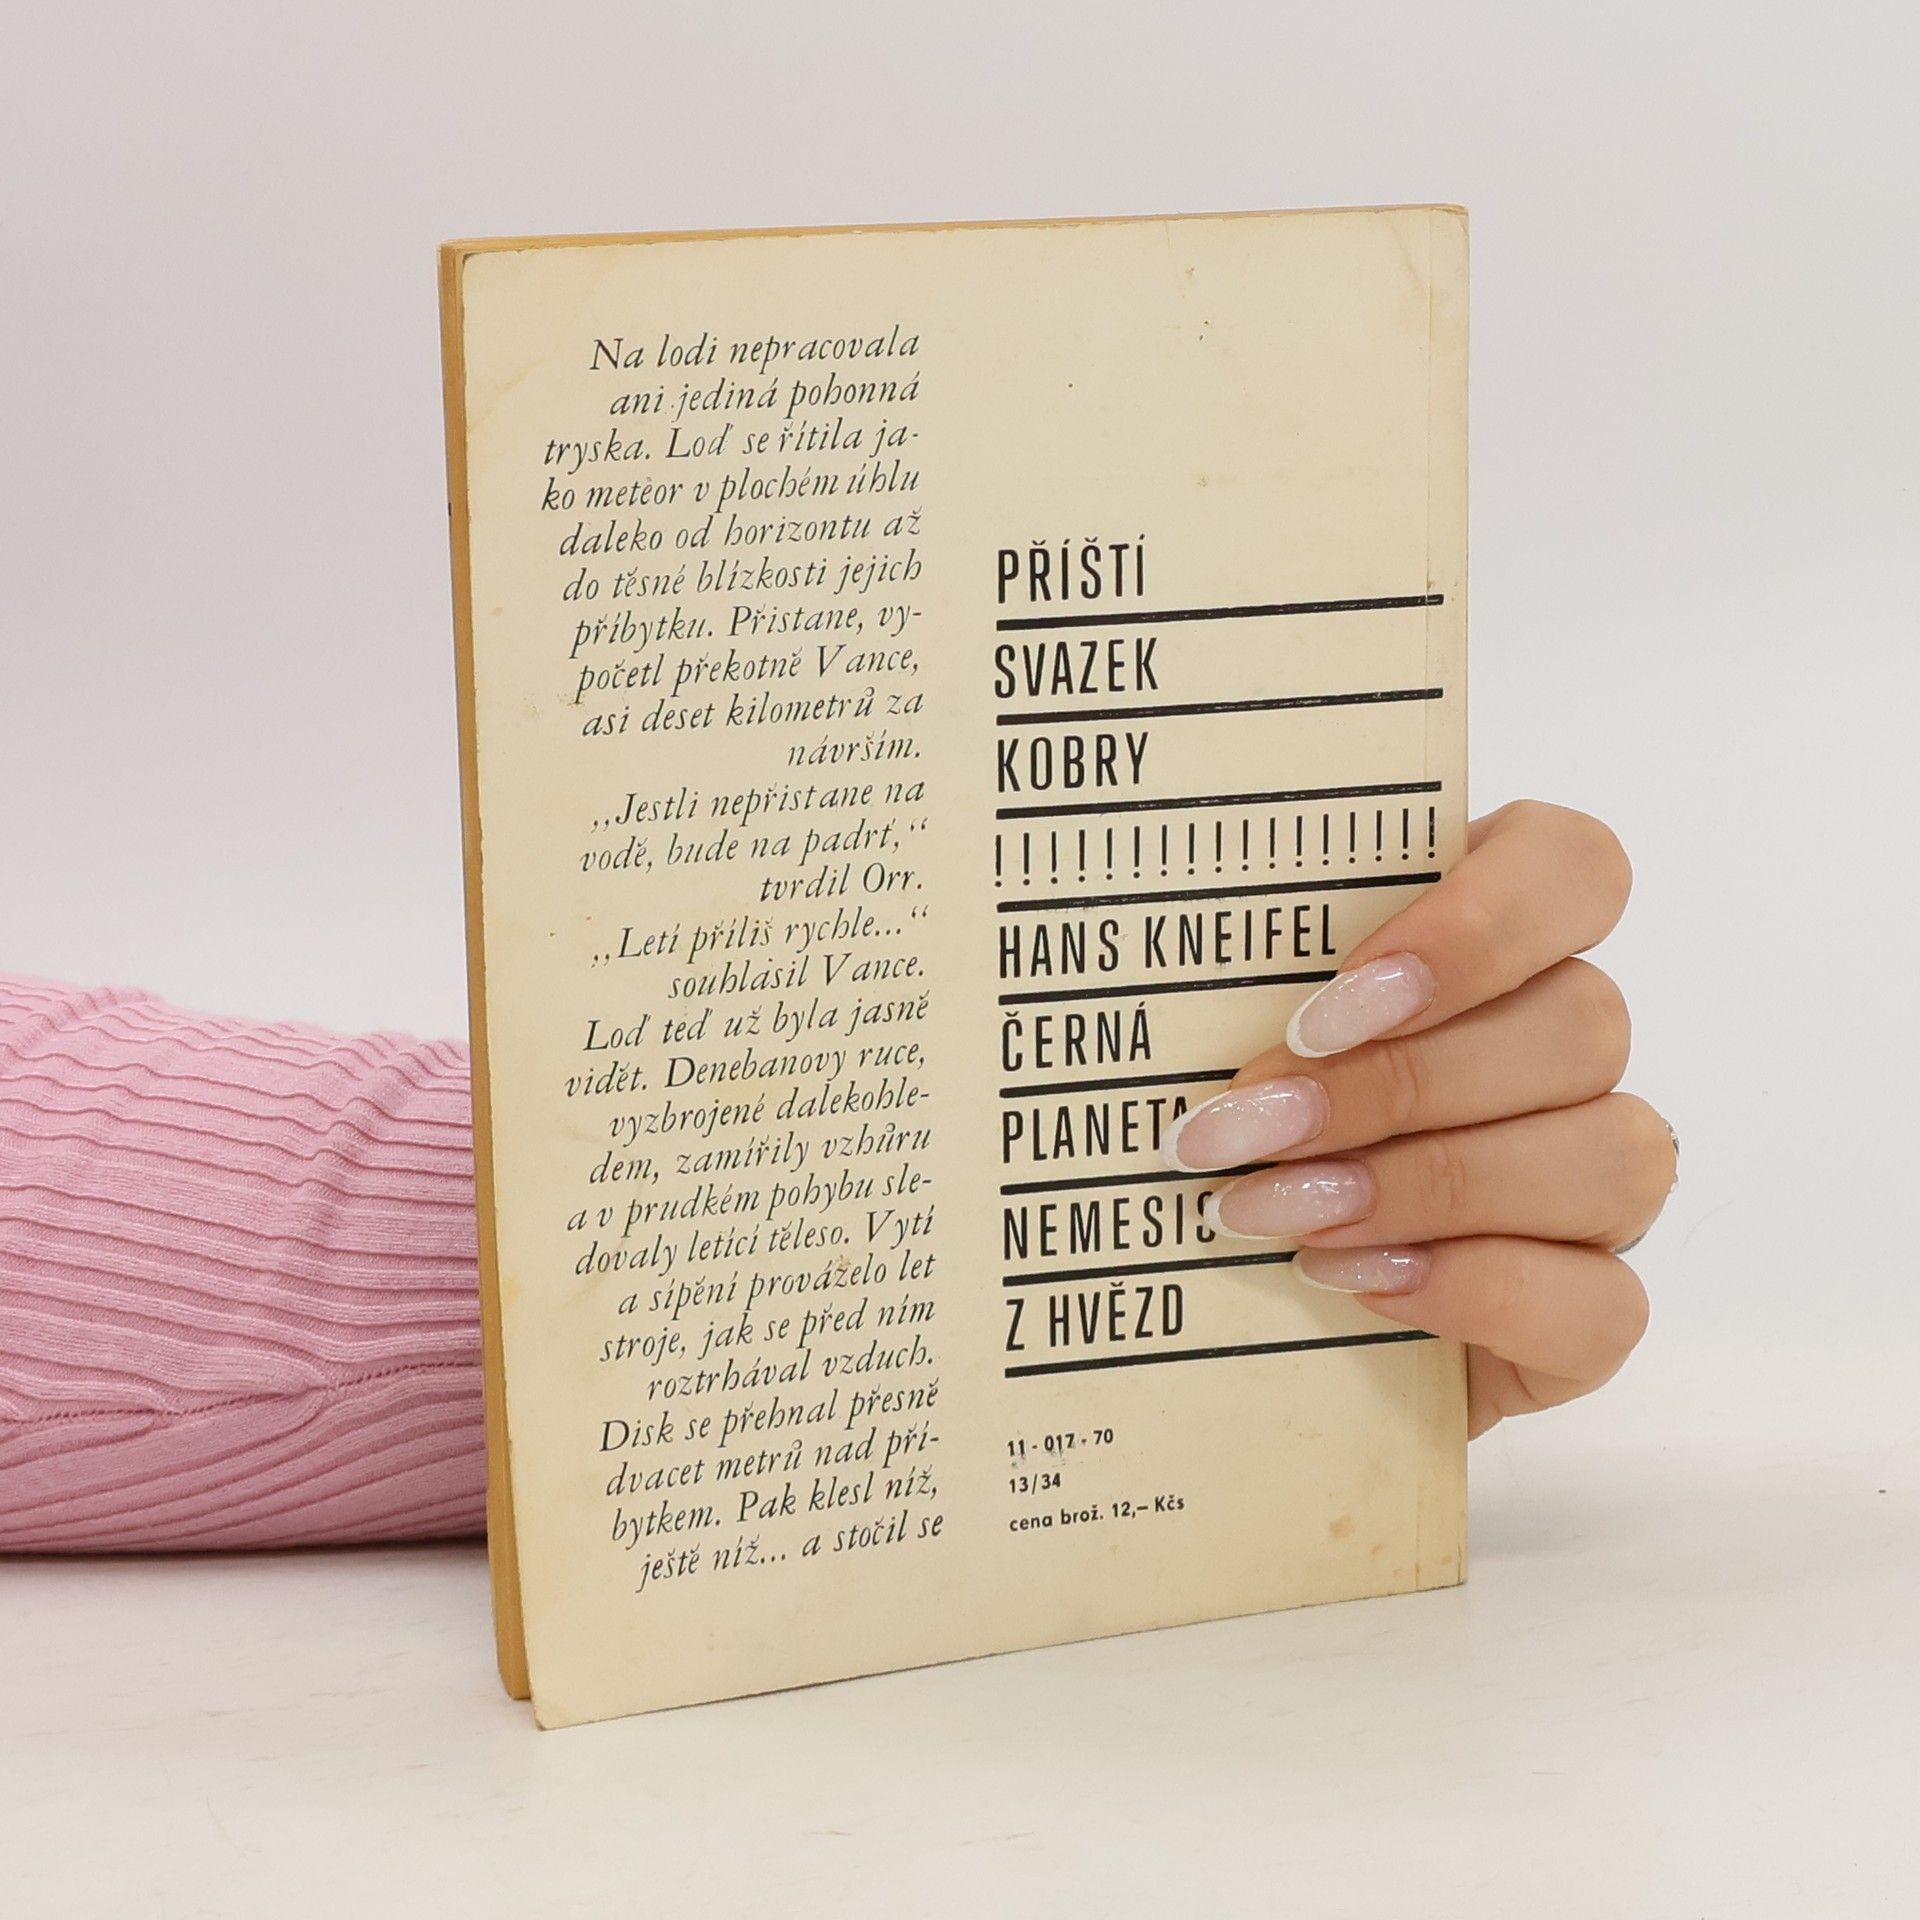 Na lodi nepracovala
ani jediná pohonná
tryska. Loď se řítila ja-
ko meteor v plochém úhlu
daleko od horizontu až
do těsné blízkosti jejich
příbytku. Přistane, vy-
početl překotně Vance,
asi deset kilometrů za
návrším.
,,Jestli nepřistane na
vodě, bude na padrť,“
tvrdil Orr.
,,Letí příliš rychle...“
souhlasil Vance.
Loď teď už byla jasně
vidět. Denebanovy ruce,
vyzbrojené dalekohle-
dem, zamířily vzhůru
a v prudkém pohybu sle-
dovaly letící těleso. Vytí
a sípění provázelo let
stroje, jak se před ním
roztrhával vzduch.
Disk se přehnal přesně
dvacet metrů nad pří-
bytkem. Pak klesl níž,
ještě níž... a stočil se
PŘÍŠTÍ
SVAZEK
KOBRY
!!!!!!!!!!!!!!!!!
HANS KNEIFEL
ČERNÁ
PLANETA
NEMESIS
Z HVĚZD
11 - 017 - 70
13/34
cena brož. 12,– Kčs